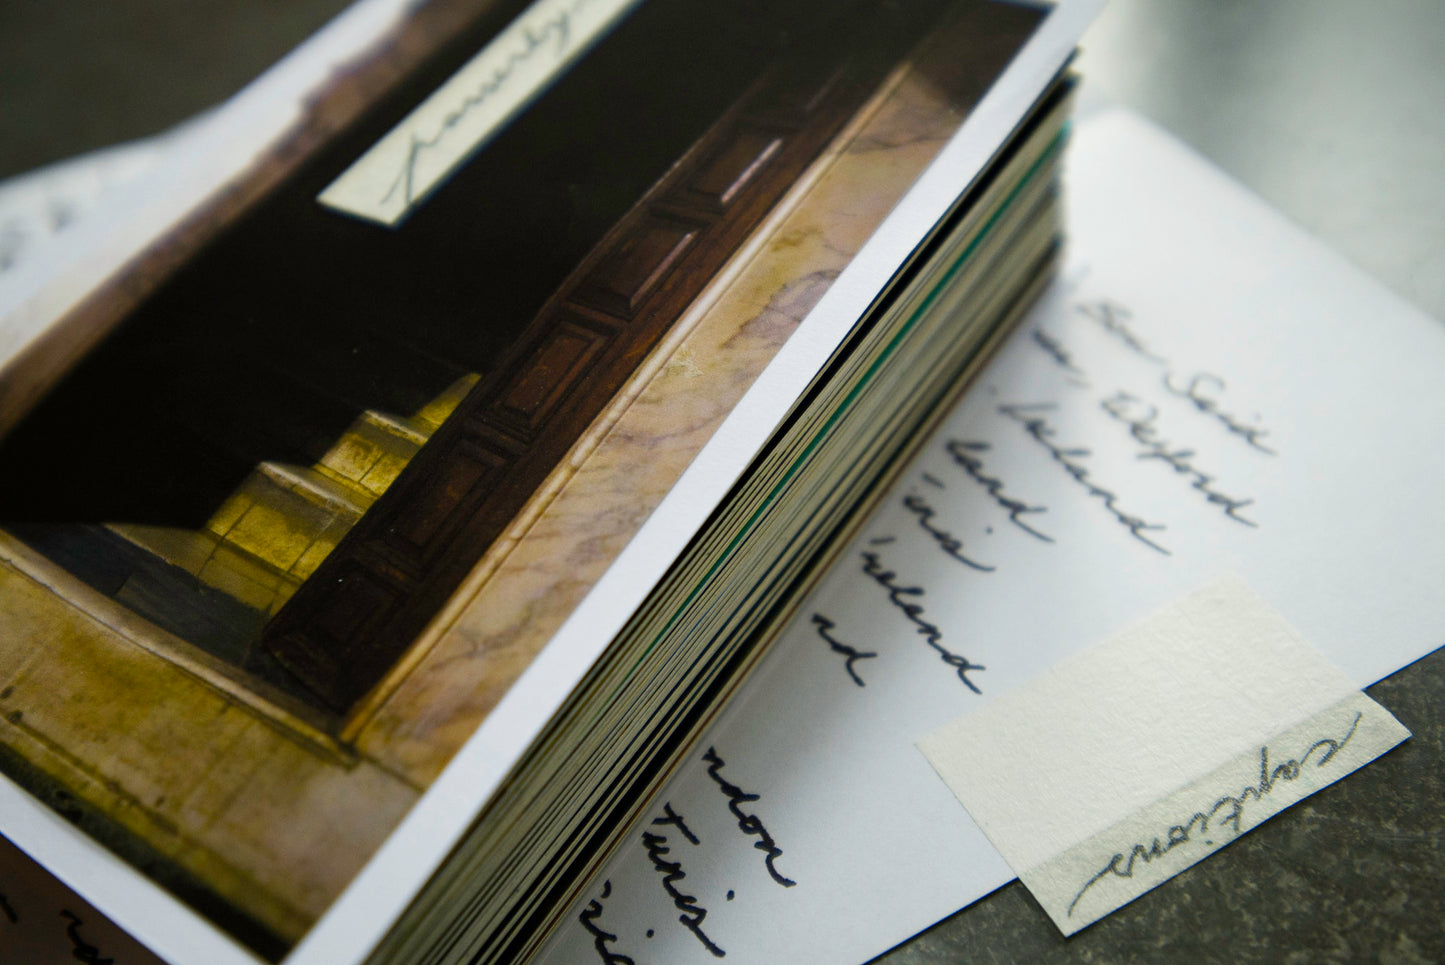 Bou Said
Wexford
Ireland
land
unis
reland
nd
ndon
Tunis
captions